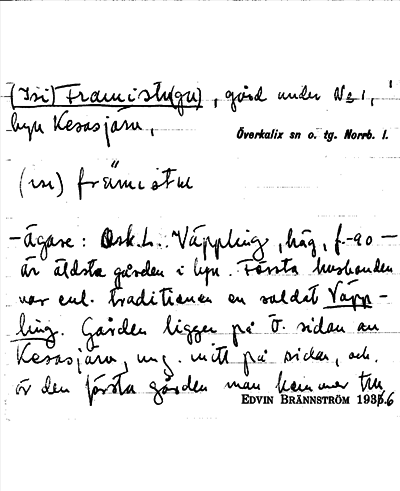 (Isi) Framistu(gu), gård under No 1,
byn Kesasjärv,
Överkalix sn o. tg. Norrb. l.
(isi) främistu
- ägare: Osk. L. Väppling, häg, f. -90 -
är äldsta gården i byn. Första husbonden
var enl. traditionen en soldat Väpp-
ling. Gården ligger på Ö. sidan av
Kesasjärv, ung. mitt på sidan, och
är den första gården man kommer till
EDVIN BRÄNNSTRÖM 1936